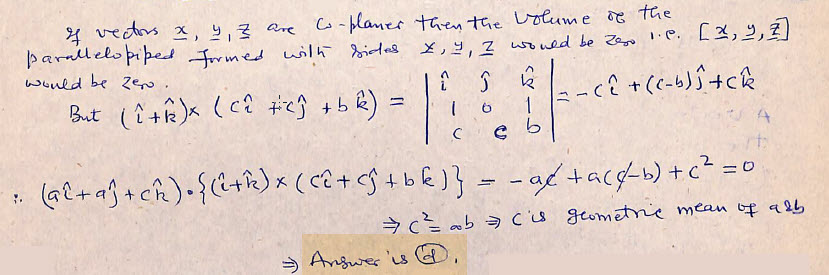 If vectors x, y, z are co-planer then the volume of the
parallelopiped formed with sides x, y, z would be zero i.e. [x, y, z]
would be zero.
But (î+k̂)×(cî+cĵ+bk̂) = | î ĵ k̂ | = -cî+(c-b)ĵ+ck̂
| 1 0 1 |
| c c b |
∴ (aî+aĵ+ck̂)·{(î+k̂)×(cî+cĵ+bk̂)} = -ac+a(c-b)+c²=0
⇒ c²=ab ⇒ c is geometric mean of a & b
⇒ Answer is (d).